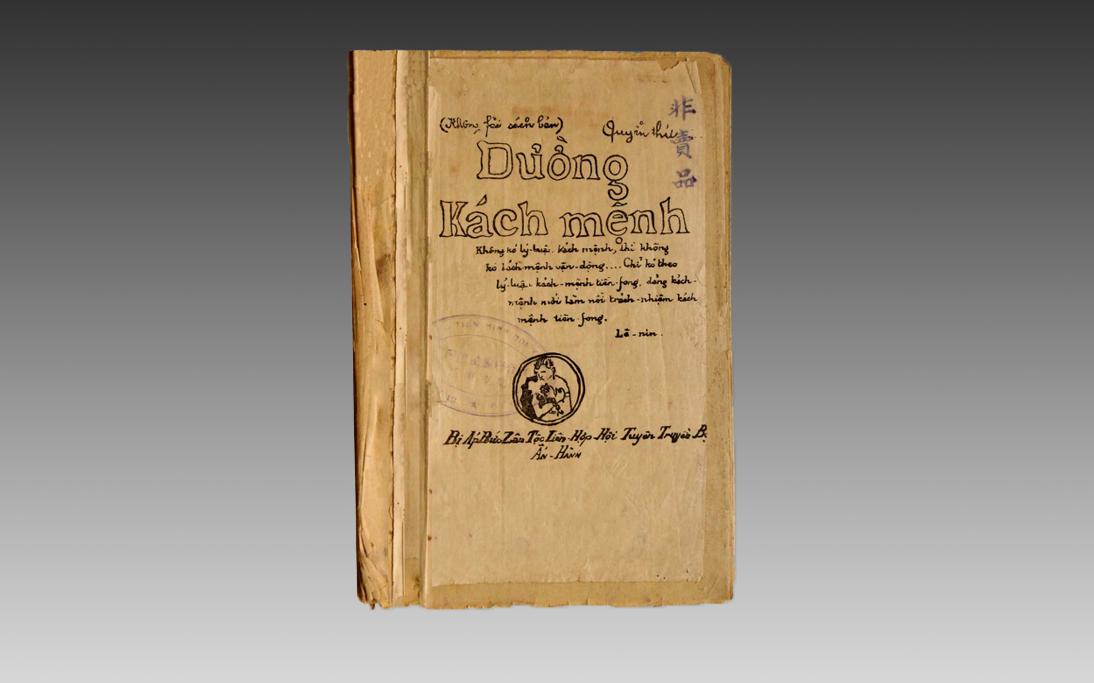 (Không fải sách bán) Quyển thứ
非賣品
Đường
Kách mệnh
Không kó lý-luận kách mệnh, thì không
kó kách mệnh vận-động.... Chỉ kó theo
lý-luận kách-mệnh tiền-fong, đảng kách-
mệnh mới làm nổi trách-nhiệm kách
mệnh tiền-fong.
Lê-nin.
Bị Áp Bức Zân Tộc Liên-Hợp Hội Tuyên Truyền Bộ
Ấn-Hành